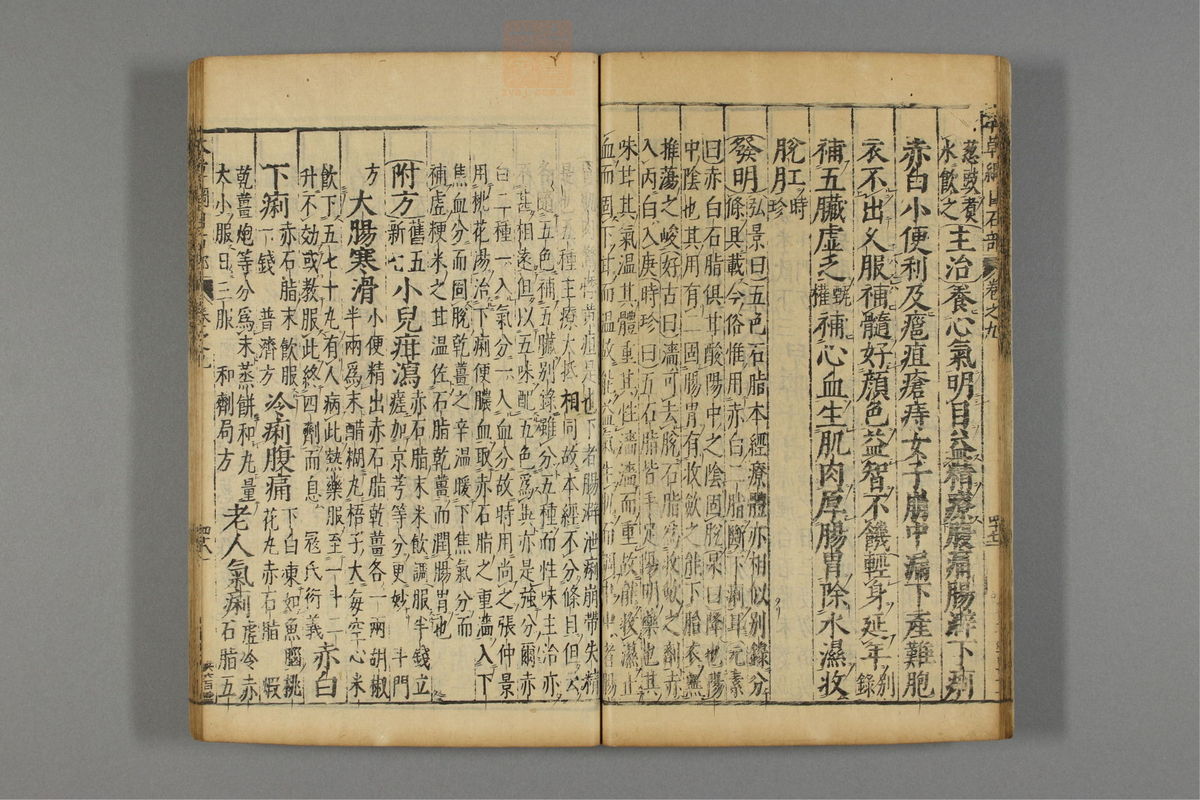 葱豉煑
水飲之主治養心氣明目益精療腹痛腸澼下痢
赤白小便利及癰疽瘡痔女子崩中漏下産難胞
衣不出久服補髓好顔色益智不饑輕身延年别
録
補五臟虚乏甄
權補心血生肌肉厚腸胃除水濕收
脫肛時
珍
發明弘景曰五色石脂本經療體亦相似别錄分
條具載今俗惟用赤白二脂斷下痢耳元素
曰赤白石脂俱甘酸陽中之陰固脫杲曰降也陽
中陰也其用有二固腸胃有收斂之能下胎衣無
推蕩之峻好古曰濇可去脫石脂爲收斂之劑赤
入丙白入庚時珍曰五石脂皆手足陽明藥也其
味甘其氣温其體重其性濇濇而重故能收濕止
血而固下甘而温故能益氣生肌而調中中者腸
下者腸澼泄痢崩帶失精
是也五種主療大抵相同故本經不分條目但云
各隨五色補五臟别錄雖分五種而性味主治亦
不甚相遠但以五味配五色爲異亦是強分爾赤
白二種一入氣分一入血分故時用尚之張仲景
用桃花湯治下痢便膿血取赤石脂之重濇入下
焦血分而固脫乾薑之辛温暖下焦氣分而
補虚粳米之甘温佐石脂乾薑而潤腸胃也
附方舊五
新七小兒疳瀉赤石脂末米飲調服半錢立
瘥加京芎等分更妙 斗門
方 大腸寒滑小便精出赤石脂乾薑各一兩胡椒
半兩爲末醋糊丸梧子大每空心米
飲下五七十丸有人病此熱藥服至一斗二
升不効或教服此終四劑而息 冦氏衍義 赤白
下痢赤石脂末飲服
一錢 普濟方 冷痢腹痛下白凍如魚腦桃
花丸赤石脂煆
乾薑炮等分爲末蒸餅和丸量
大小服日三服 和劑局方 老人氣痢虚冷赤
石脂五